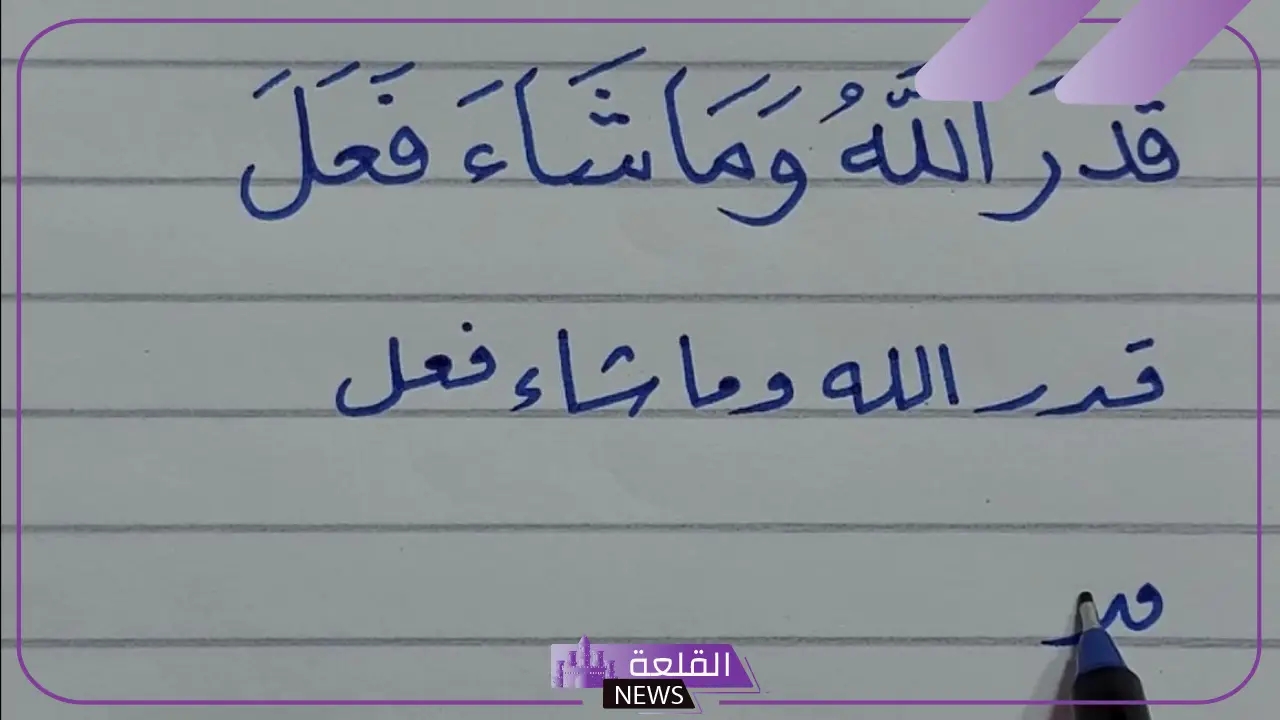 قدرَ اللَّهُ وَمَا شَاءَ فَعَلَ
قدر الله وما شاء فعل
قد
القلعة
NEWS